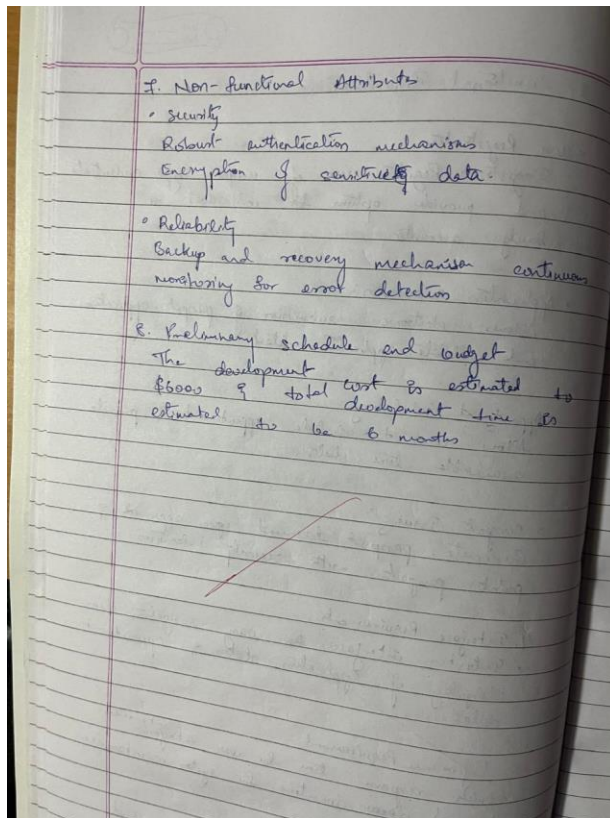 7. Non-functional Attributes
• Security
Robust authentication mechanisms
Encryption of sensitive data.
• Reliability
Backup and recovery mechanism continuous
monitoring for error detection
8. Preliminary schedule and budget
The development cost is estimated to
$6000 & total development time is
estimated to be 6 months